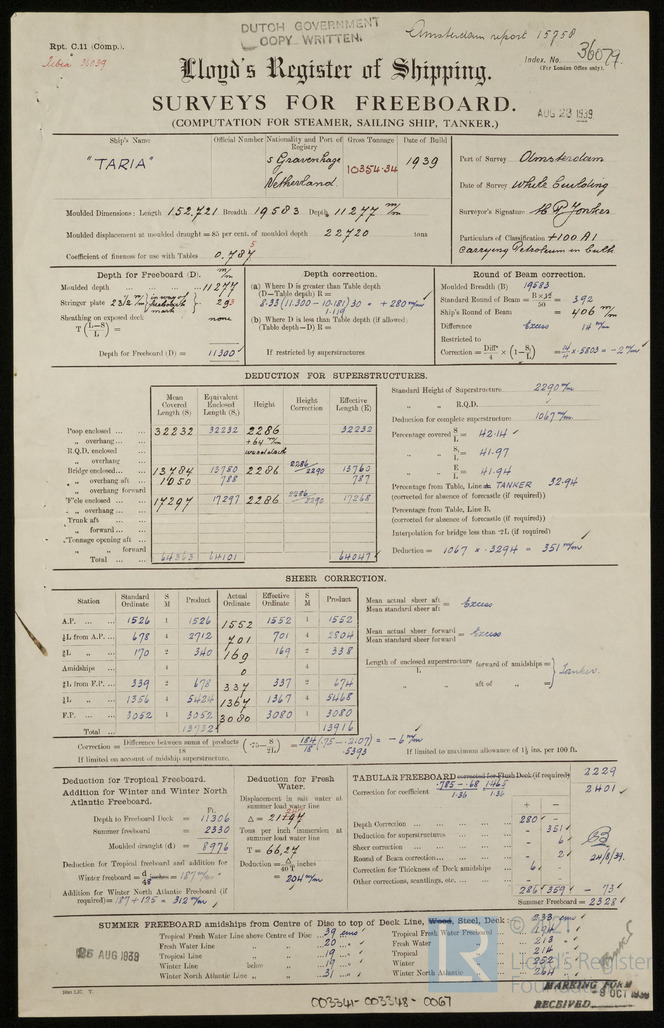 DUTCH GOVERNMENT
COPY WRITTEN.
Amsterdam report 15958
Rpt. C.11 (Comp.).
36039
Index. No. 36079.
(For London Office only).
Lloyd's Register of Shipping.
SURVEYS FOR FREEBOARD.
(COMPUTATION FOR STEAMER, SAILING SHIP, TANKER.)
AUG 28 1939
Ship's Name
Official Number
Nationality and Port of Registry
Gross Tonnage
Date of Build
"TARIA"
s Gravenhage
Netherland.
10354.34
1939
Port of Survey Amsterdam
Date of Survey While building
Surveyor's Signature
Particulars of Classification +100 A1
Carrying Petroleum in Bulk
Moulded Dimensions: Length 152,721 Breadth 19583 Depth 11277 m/m
Moulded displacement at moulded draught = 85 per cent. of moulded depth 22720 tons
Coefficient of fineness for use with Tables 0.787
Depth for Freeboard (D). m/m
Moulded depth 11277
Stringer plate 23½ m/m in way of freeboard mark 23
Sheathing on exposed deck none
T (L−S / L) =
Depth for Freeboard (D) = 11300
Depth correction.
(a) Where D is greater than Table depth
(D−Table depth) R =
8.33 (11.300 − 10.181) 30 = + 280 m/m
1.119
(b) Where D is less than Table depth (if allowed)
(Table depth−D) R =
If restricted by superstructures
Round of Beam correction.
Moulded Breadth (B) 19583
Standard Round of Beam = B×12/50 = 392
Ship's Round of Beam = 406 m/m
Difference Excess 14 m/m
Restricted to
Correction = Diff/4 × (1−S/L) = 14/4 × .5803 = −2 m/m
DEDUCTION FOR SUPERSTRUCTURES.
Mean Covered Length (S)
Equivalent Enclosed Length (S₁)
Height
Height Correction
Effective Length (E)
Poop enclosed 32232 32232 2286 32232
„ overhang +64 m/m
R.Q.D. enclosed wood deck
„ overhang
Bridge enclosed 13784 13780 2286 2286/2290 13760
„ overhang aft 1050 788 787
„ overhang forward
F'cle enclosed 17297 17297 2286 2286/2290 17268
„ overhang
Trunk aft
„ forward
Tonnage opening aft
„ „ forward
Total 64363 64101 64047
Standard Height of Superstructure 2290 m/m
„ „ R.Q.D.
Deduction for complete superstructure 1067 m/m
Percentage covered S/L = 42.14
„ „ S₁/L = 41.97
„ „ E/L = 41.94
Percentage from Table, Line TANKER 32.94
(corrected for absence of forecastle (if required))
Percentage from Table, Line B.
(corrected for absence of forecastle (if required))
Interpolation for bridge less than ·2L (if required)
Deduction = 1067 × .3294 = 351 m/m
SHEER CORRECTION.
Station
Standard Ordinate
S M
Product
Actual Ordinate
Effective Ordinate
S M
Product
A.P. 1526 1 1526 1552 1552 1 1552
⅙L from A.P. 678 4 2712 701 701 4 2804
⅓L „ 170 2 340 169 169 2 338
Amidships 4 0 4
⅓L from F.P. 339 2 678 337 337 2 674
⅙L „ 1356 4 5424 1367 1367 4 5468
F.P. 3052 1 3052 3080 3080 1 3080
Total 13732 13916
Mean actual sheer aft / Mean standard sheer aft = Excess
Mean actual sheer forward / Mean standard sheer forward = Excess
Length of enclosed superstructure / L forward of amidships =
„ „ aft of „ = Tanker.
Correction = Difference between sums of products / 18 (·75 − S/2L) = 184/18 (.75 − .2107) = −6 m/m
.5393
If limited on account of midship superstructure.
If limited to maximum allowance of 1½ ins. per 100 ft.
Deduction for Tropical Freeboard.
Addition for Winter and Winter North
Atlantic Freeboard.
Ft.
Depth to Freeboard Deck = 11306
Summer freeboard = 2330
Moulded draught (d) = 8976
Deduction for Tropical freeboard and addition for
Winter freeboard = d/48 = 187 m/m
Addition for Winter North Atlantic Freeboard (if
required) = 187+125 = 312 m/m
Deduction for Fresh
Water.
Displacement in salt water at
summer load water line
Δ =
Tons per inch immersion at
summer load water line
T = 66,27
Deduction = Δ/40 T inches
= 204 m/m
TABULAR FREEBOARD corrected for Flush Deck (if required) 2229
Correction for coefficient .785 + .68 / 1.36 1.465 / 1.36 2401
+ −
Depth Correction 280
Deduction for superstructures 351
Sheer correction 6
Round of Beam correction 2
Correction for Thickness of Deck amidships 6
Other corrections, scantlings, etc.
286 359 − 73
Summer Freeboard = 2328
24/8/39.
SUMMER FREEBOARD amidships from Centre of Disc to top of Deck Line, Wood, Steel, Deck: 233 cms
Tropical Fresh Water Line above Centre of Disc 39 cms
Fresh Water Line „ „ 20
Tropical Line „ „ 19
Winter Line below „ 19
Winter North Atlantic Line „ „ 31
Tropical Fresh Water Freeboard 194
Fresh Water „ 213
Tropical „ 214
Winter „ 252
Winter North Atlantic „ 264
25 AUG 1939
© 2021
LR
Lloyd's Register
Foundation
MARKING FORM
RECEIVED 9 OCT 1939
003341-003348-0067